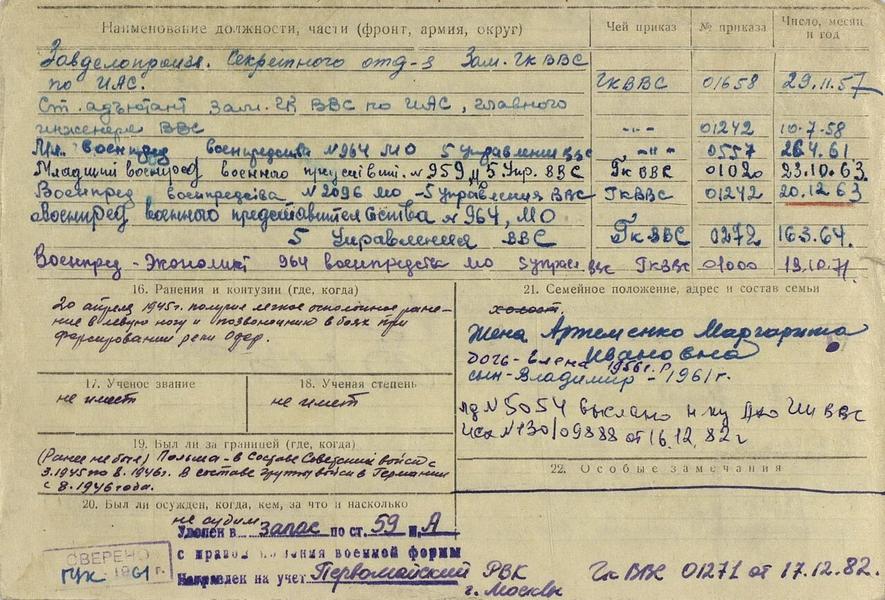 Наименование должности, части (фронт, армия, округ) Чей приказ № приказа Число, месяц и год
Завделопроизв. Секретного отд-я Зам. ГК ВВС
по ИАС. ГКВВС 01658 29.11.57
Ст. адъютант Зам. ГК ВВС по ИАС, главного
инженера ВВС -"- 01242 10.7.58
Мл. военпред военпредства №964 МО 5 управления ВВС -"- 0557 26.4.61
Младший военпред военного № 959, 5 Упр. ВВС ГК ВВС 01020 23.10.63.
Военпред военпредства № 2096 МО -5 Управления ВВС ГКВВС 01242 20.12.63
Военпред военного представительства № 964, МО
5 Управления ВВС ГК ВВС 0272 16.3.64.
Военпред - Экономист 964 военпредства МО ВВС ГКВВС 01000 19.10.71.
16. Ранения и контузии (где, когда)
20 апреля 1945г. получил легкое осколочное ране-
ние в левую ногу и позвоночник в боях при
форсировании реки Одер.
17. Ученое звание
не имеет
18. Ученая степень
не имеет
19. Был ли за границей (где, когда)
(Ранее не был) Польша - в составе Советских войск с
3.1945 по 8.1946г. В составе группы войск в Германии
с 8.1946 года.
20. Был ли осужден, когда, кем, за что и насколько
не судим
Уволен в запас по ст. 59 п. А
с правом ношения военной формы
Направлен на учет Первомайский РВК
г. Москвы
СВЕРЕНО
1961 г.
21. Семейное положение, адрес и состав семьи
холост
Жена Артеменко Маргарита
Ивановна
дочь - Елена 1956г.р
сын - Владимир - 1961г.
лд №5054 выслано
исх №130/09888 от 16.12.82г
22. Особые замечания
ГК ВВС 01271 от 17.12.82.